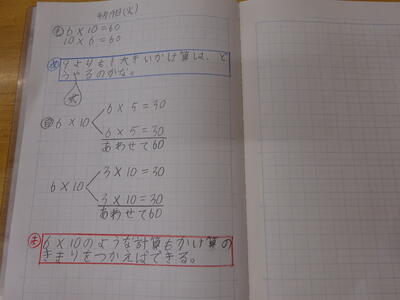 6×10=60
10×6=60
9よりも1大きいかけ算は、ど
うやるのかな。
6×10
6×5=30
6×5=30
あわせて60
6×10
3×10=30
3×10=30
あわせて60
6×10のような計算もかけ算の
きまりをつかえばできる。